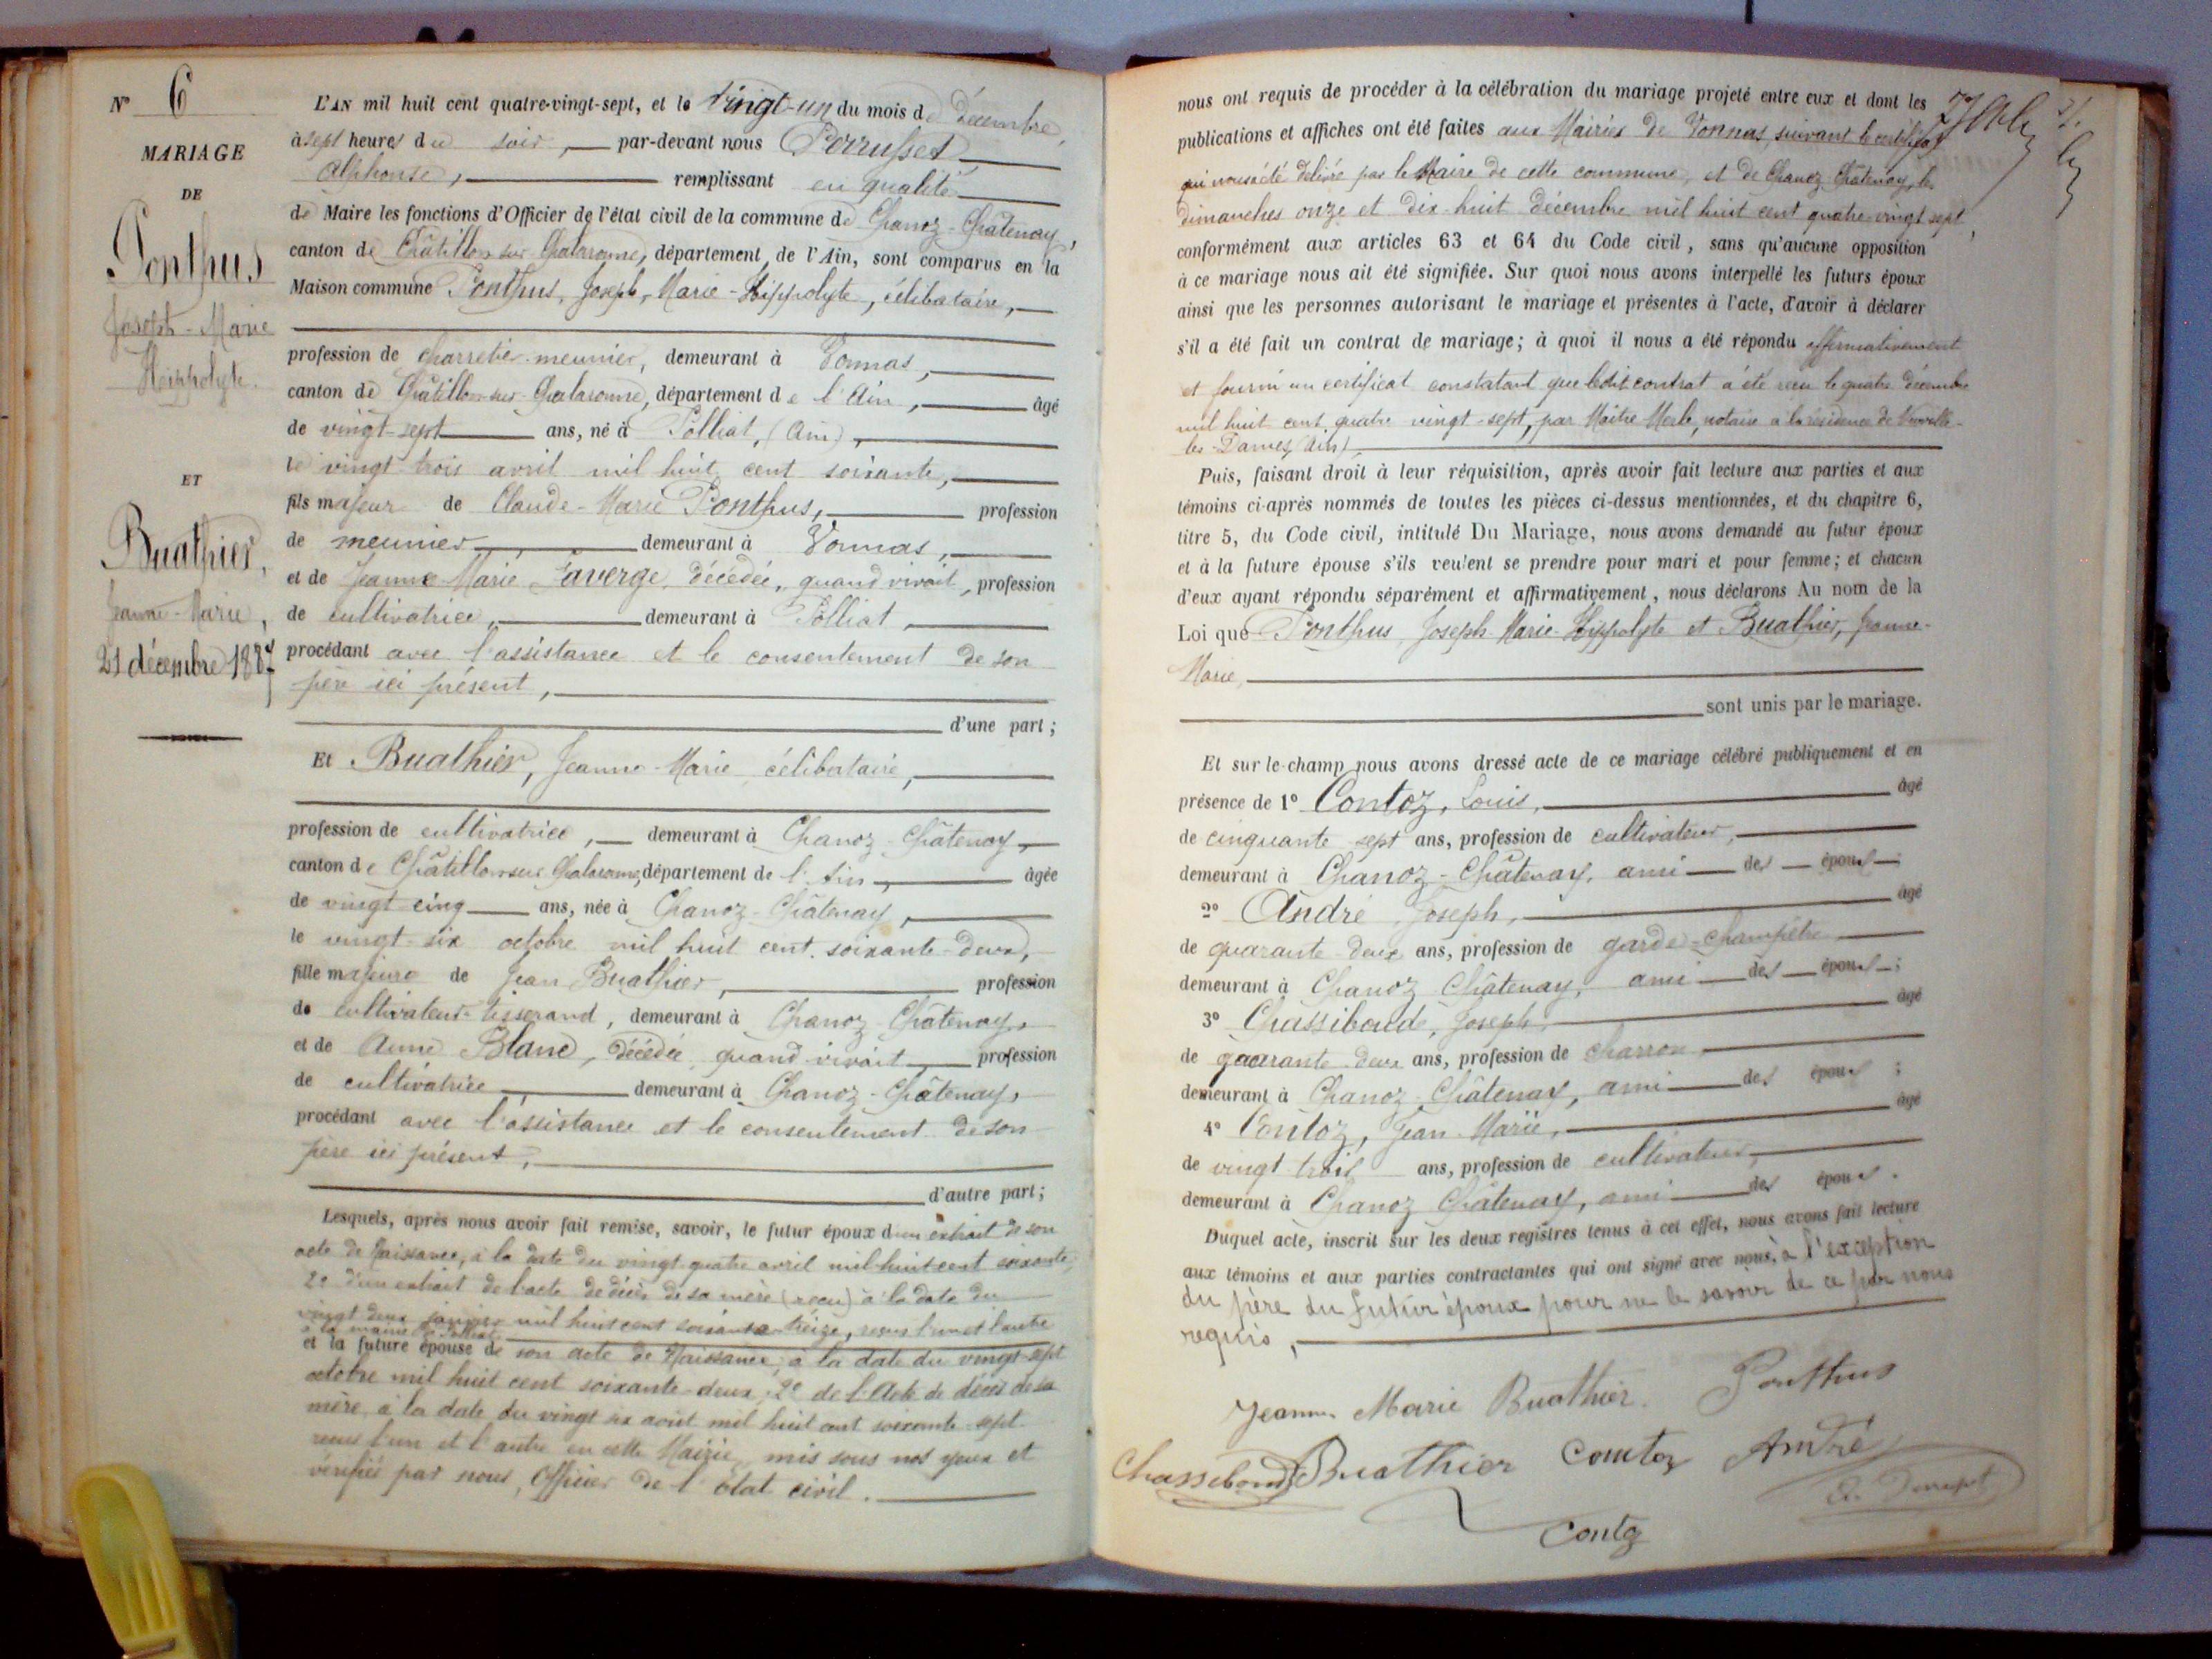 N° 6
MARIAGE
DE
Ponthus
Joseph-Marie
Hippolyte.
ET
Buathier,
Jeanne-Marie,
21 décembre 1887
L'AN mil huit cent quatre-vingt-sept, et le vingt-un du mois de décembre,
à sept heures du soir, par-devant nous Perrusset
Alphonse, remplissant en qualité
de Maire les fonctions d'Officier de l'état civil de la commune de Chanoz-Châtenay,
canton de Châtillon sur Chalaronne, département de l'Ain, sont comparus en la
Maison commune Ponthus, Joseph-Marie-Hippolyte, célibataire,
profession de charretier-meunier, demeurant à Vonnas,
canton de Châtillon-sur-Chalaronne, département de l'Ain, âgé
de vingt-sept ans, né à Polliat, (Ain),
le vingt trois avril mil huit cent soixante,
fils majeur de Claude-Marie Ponthus, profession
de meunier, demeurant à Vonnas,
et de Jeanne Marie Faverge, décédée, quand vivait, profession
de cultivatrice, demeurant à Polliat,
procédant avec l'assistance et le consentement de son
père ici présent,
d'une part;
Et Buathier, Jeanne-Marie célibataire,
profession de cultivatrice, demeurant à Chanoz-Châtenay,
canton de Châtillon sur Chalaronne, département de l'Ain, âgée
de vingt-cinq ans, née à Chanoz-Châtenay,
le vingt-six octobre mil huit cent soixante-deux,
fille majeure de Jean Buathier, profession
de cultivateur-tisserand, demeurant à Chanoz-Châtenay,
et de Anne Blanc, décédée quand vivait profession
de cultivatrice, demeurant à Chanoz-Châtenay,
procédant avec l'assistance et le consentement de son
père ici présent,
d'autre part;
Lesquels, après nous avoir fait remise, savoir, le futur époux d'un extrait de son
acte de Naissance, à la date du vingt-quatre avril mil huit cent soixante,
2° d'un extrait de l'acte de décès de sa mère (reçu) à la date du
vingt deux janvier mil huit cent soixante-treize, reçus l'un et l'autre
à la mairie de Polliat
et la future épouse de son acte de Naissance, à la date du vingt-sept
octobre mil huit cent soixante-deux, 2° de l'Acte de décès de sa
mère, à la date du vingt six août mil huit cent soixante-sept
reçus l'un et l'autre en cette Mairie, mis sous nos yeux et
vérifiés par nous, Officier de l'état civil.
nous ont requis de procéder à la célébration du mariage projeté entre eux et dont les
publications et affiches ont été faites aux Mairies de Vonnas, suivant le certificat
qui nous a été délivré par le Maire de cette commune, et de Chanoz-Châtenay, les
dimanches onze et dix-huit décembre mil huit cent quatre-vingt sept,
conformément aux articles 63 et 64 du Code civil, sans qu'aucune opposition
à ce mariage nous ait été signifiée. Sur quoi nous avons interpellé les futurs époux
ainsi que les personnes autorisant le mariage et présentes à l'acte, d'avoir à déclarer
s'il a été fait un contrat de mariage; à quoi il nous a été répondu affirmativement
et fourni un certificat constatant que ledit contrat a été reçu le quatre décembre
mil huit cent quatre vingt-sept, par Maître Merle, notaire à la résidence de Neuville-
les-Dames (Ain),
Puis, faisant droit à leur réquisition, après avoir fait lecture aux parties et aux
témoins ci-après nommés de toutes les pièces ci-dessus mentionnées, et du chapitre 6,
titre 5, du Code civil, intitulé Du Mariage, nous avons demandé au futur époux
et à la future épouse s'ils veulent se prendre pour mari et pour femme; et chacun
d'eux ayant répondu séparément et affirmativement, nous déclarons Au nom de la
Loi que Ponthus Joseph-Marie-Hippolyte et Buathier, Jeanne-
Marie,
sont unis par le mariage.
Et sur-le-champ nous avons dressé acte de ce mariage célébré publiquement et en
présence de 1° Contoz, Louis, âgé
de cinquante-sept ans, profession de cultivateur,
demeurant à Chanoz-Châtenay, ami des époux;
2° André Joseph, âgé
de quarante-deux ans, profession de garde-champêtre
demeurant à Chanoz Châtenay, ami des époux;
3° Chassiboud, Joseph, âgé
de quarante deux ans, profession de charron
demeurant à Chanoz-Châtenay, ami des époux;
4° Contoz, Jean Marie, âgé
de vingt-trois ans, profession de cultivateur,
demeurant à Chanoz Châtenay, ami des époux.
Duquel acte, inscrit sur les deux registres tenus à cet effet, nous avons fait lecture
aux témoins et aux parties contractantes qui ont signé avec nous, à l'exception
du père du futur époux pour ne le savoir de ce par nous
requis,
Jeanne Marie Buathier. Ponthus
Chassiboud Buathier Comtoz André
Contoz